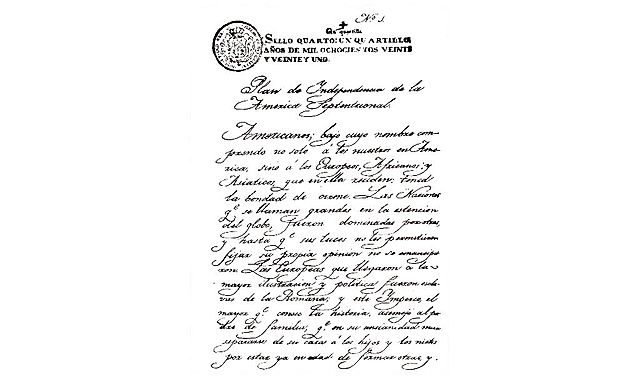 Nº 1.
Un quartillo
SELLO QUARTO: UN QUARTILLO
AÑOS DE MIL OCHOCIENTOS VEINTE
Y VEINTE Y UNO.
Plan de Independencia de la
America Septentrional.
Americanos; bajo cuyo nombre com-
prendo no solo á los nuestros en Ame-
rica, sino á los Europeos, Africanos y
Asiaticos que en ella residen: tened
la bondad de oirme. Las Naciones
qº se llaman grandes en la estencion
del globo, fueron dominadas por otras,
y hasta qº sus luces no les permitieron
fijar su propia opinion no se emancipa-
ron. Las Europeas que llegaron á la
mayor ilustracion y politica fueron escla-
vas de la Romana; y este Imperio, el
mayor qº conoce la historia, asemejó al pa-
dre de familias, qº en su ancianidad mira
separarse de su casa á los hijos y los nietos
por estar ya en edad de formar otras y